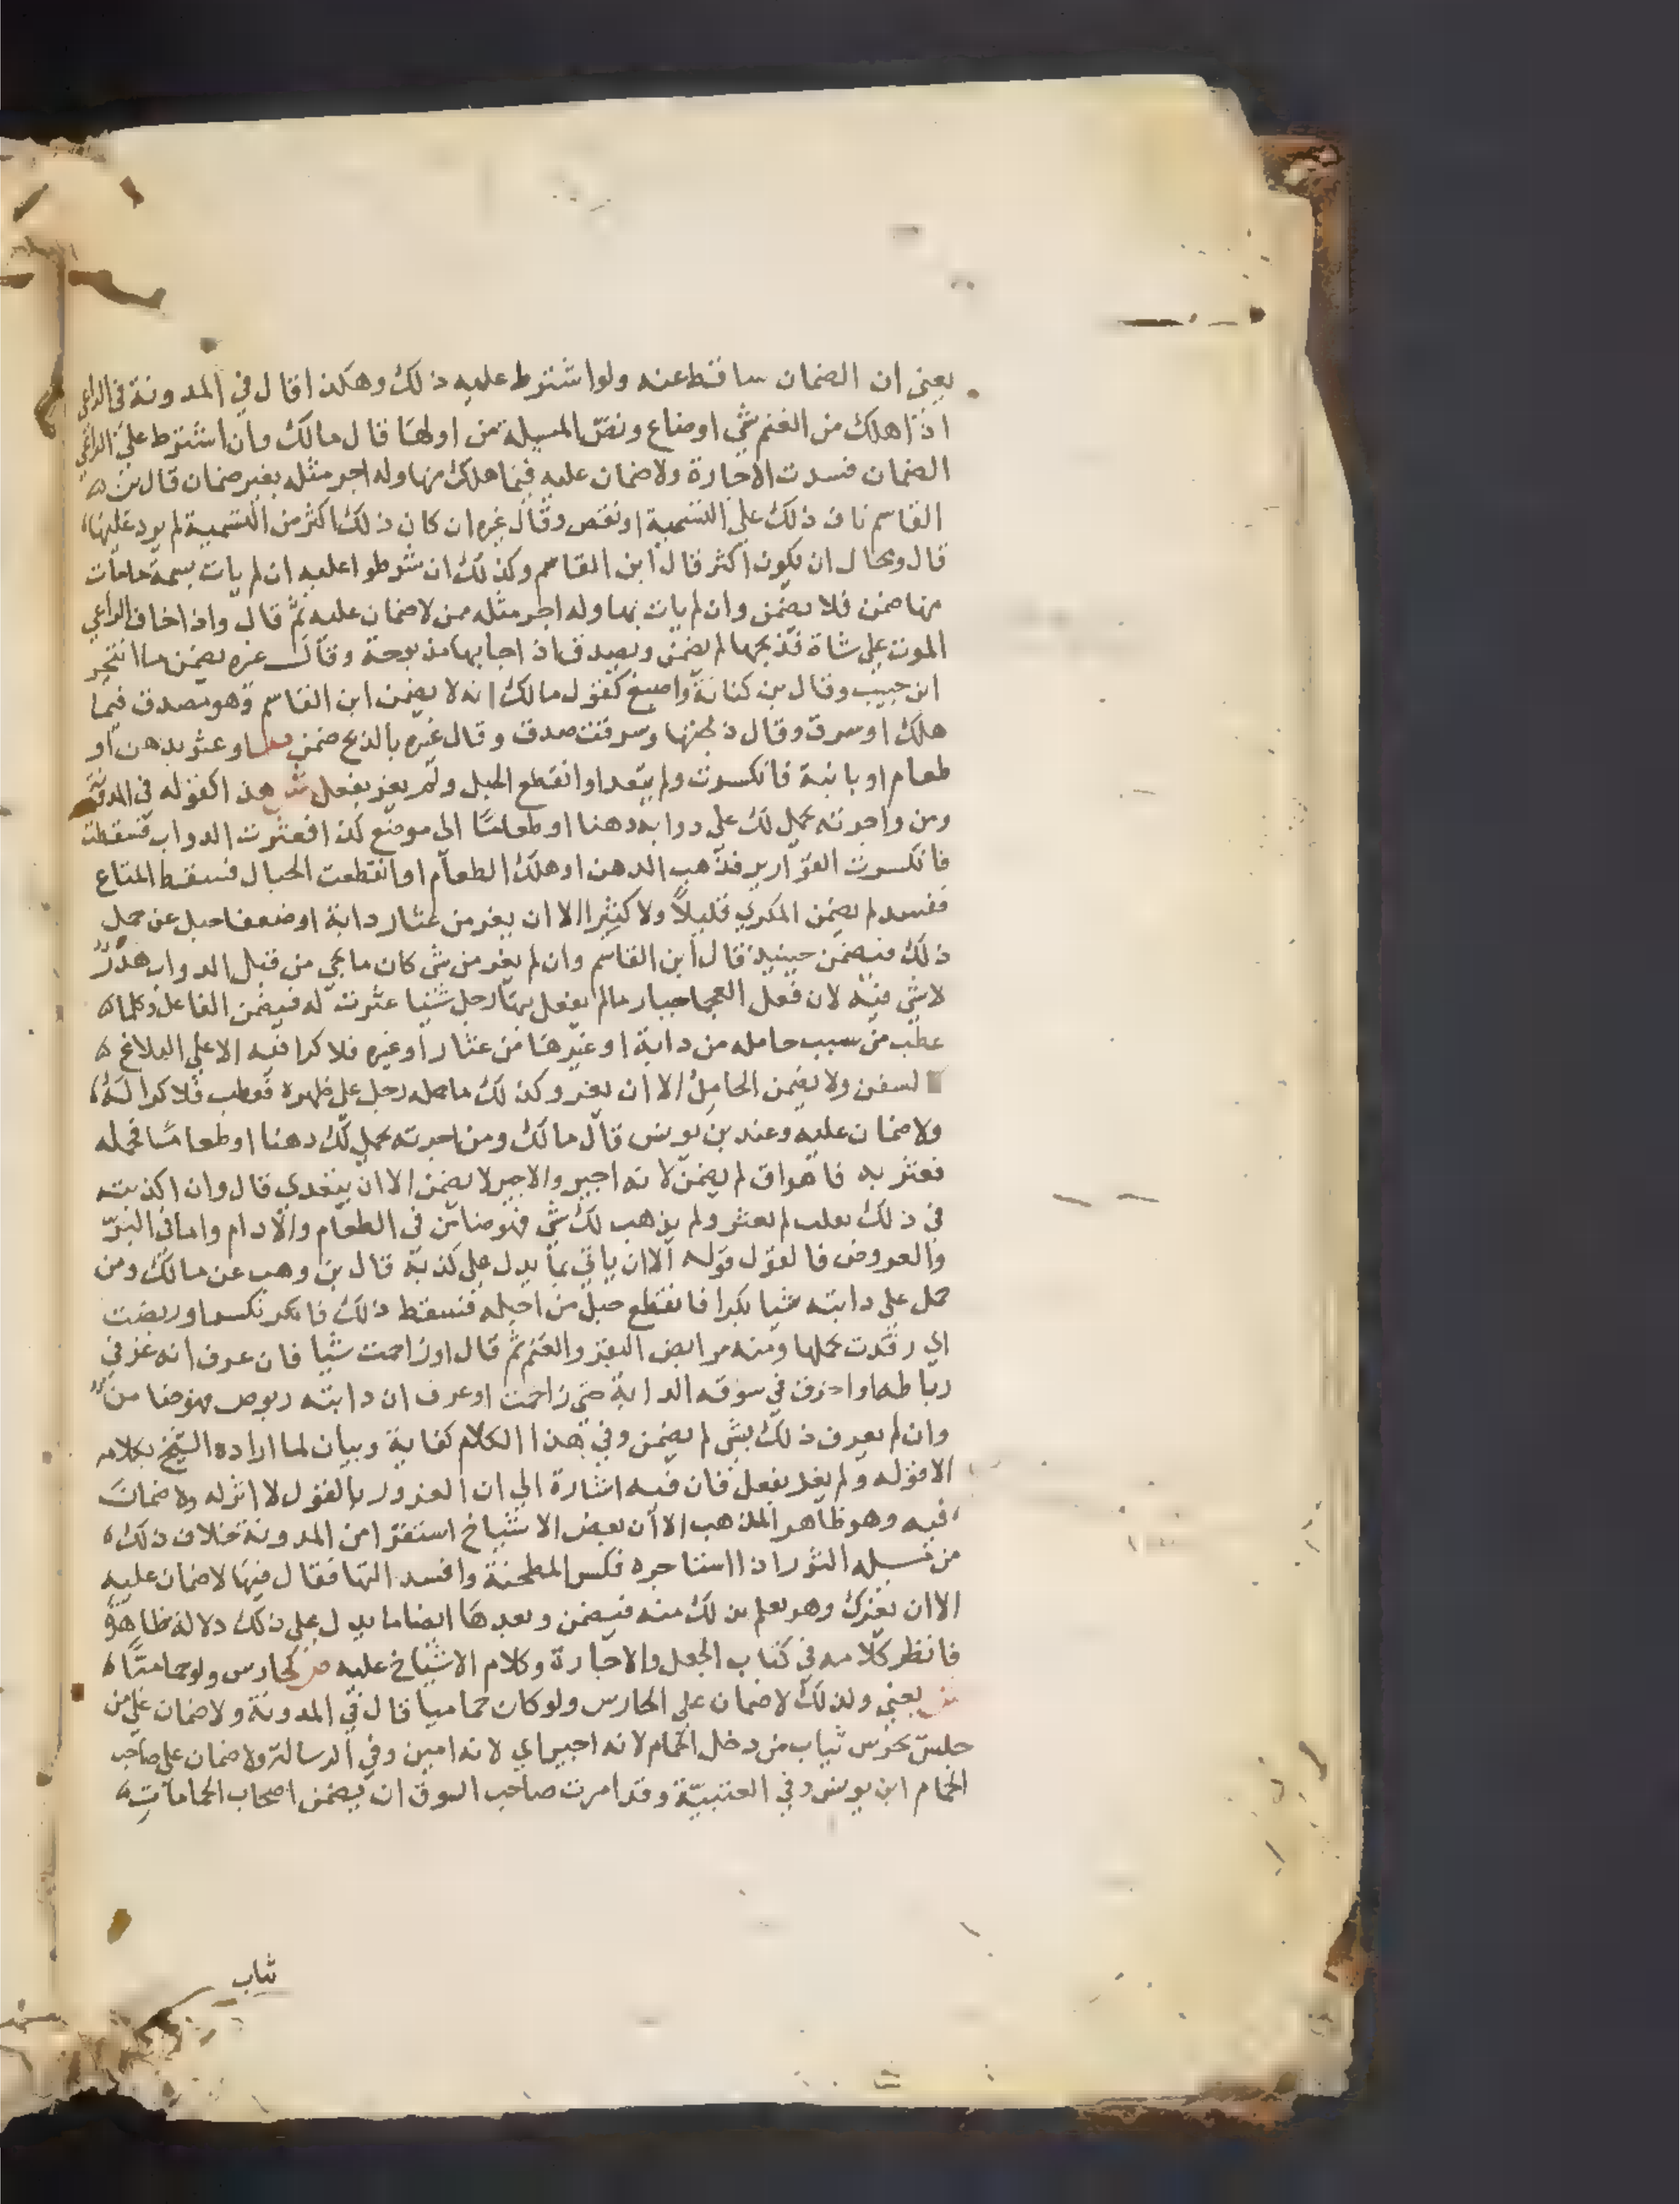 يعني ان الضمان ساقط عنه ولو اشترط عليه ذلك وهكذا قال في المدونة في الراعي
اذا هلك من الغنم شي اوضاع ونص المسيلة من اولها قال مالك وان اشترط على الراعي
الضمان فسدت الاجارة ولا ضمان عليه فيما هلك منها وله اجر مثله بغير ضمان قال بن
القاسم ناف ذلك على التسمية او نقص وقال غيره ان كان ذلك اكثر من التسمية لم يزد عليها
قال ومحال ان يكون اكثر قال ابن القاسم وكذلك ان شرطوا عليه ان لم يات بسمة مامات
منها ضمن فلا يضمن وان لم يات بها وله اجر مثله ممن لا ضمان عليه ثم قال واذا خاف الراعي
الموت على شاة فذبحها لم يضمن ويصدق اذا جا بها مذبوحة وقال غيره يضمن ما انتحر
ابن حبيب وقال بن كنانة واصبغ كقول مالك انه لا يضمن ابن القاسم وهو مصدق فيما
هلك او سرق وقال ذبحتها وسرقت صدق وقال غيره بالذبح ضمن او عثر بدهن او
طعام او بانية فانكسرت ولم يتعد او انقطع الحبل ولم يغر بفعل ش هذا كقوله في المدونة
ومن واجرته يحمل لك على دوابه دهنا او طعاما الى موضع كذا فعثرت الدواب فسقطت
فانكسرت القوارير فذهب الدهن او هلك الطعام او انقطعت الحبال فسقط المتاع
ففسد لم يضمن المكري قليلا ولا كثيرا الا ان يغر من عثار دابة او ضعف احبل عن حمل
ذلك فيضمن حينيذ قال ابن القاسم وان لم يغر من شي كان ما يجي من قبل الدواب هدر
لا شي فيه لان فعل العجما جبار مالم يفعل بها رجل شيا عثرت له فيضمن الفاعل وكلما
عطب من سبب حامله من دابة او غيرها من عثار او غيره فلا كرا فيه الا على البلاغ
لسفن ولا يضمن الحامل الا ان يغر وكذلك ما حمله رجل على ظهره فعطب فلا كرا له
ولا ضمان عليه وعند بن يونس قال مالك ومن اجرته يحمل لك دهنا او طعاما فحمله
فعثر به فاهراق لم يضمن لانه اجير والاجير لا يضمن الا ان يتعدي قال وان اكذبته
في ذلك لم يعثر ولم يذهب لك شي فهو ضامن في الطعام والادام واما في البز
والعروض فالقول قوله الا ان ياتي بما يدل على كذبه قال بن وهب عن مالك ومن
حمل على دابته شيا بكرا فانقطع حبل من احبله فسقط ذلك فانكسر او ربضت
اي رقدت بحملها ومنه مرابض البقر والغنم ثم قال او زاحمت شيا فان عرف انه غر في
رباطها او احرف في سوقه الدابة حتى زاحمت او عرف ان دابته ربوض فهو ضامن
وان لم يعرف ذلك بشي لم يضمن وفي هذا الكلام كفاية وبيان لما اراده الشيخ بكلامه
الا قوله ولم يغر بفعل فان فيه اشارة الى ان الغرور بالقول لا اثر له ولا ضمان
فيه وهو ظاهر المذهب الا ان بعض الاشياخ استقرا من المدونة خلاف ذلك
من الثور اذا استاجره فكسر المطحنة وافسد التها فقال فيها لا ضمان عليه
الا ان يغرك وهو يعلم بذلك منه فيضمن وبعدها ايضا ما يدل على ذلك دلالة ظاهرة
فانظر كلامه في كتاب الجعل والاجارة وكلام الاشياخ عليه ص كحارس ولو حماميا
ش يعني وكذلك لا ضمان على الحارس ولو كان حماميا قال في المدونة ولا ضمان على من
جلس يحرس ثياب من دخل الحمام لانه اجير اي لانه امين وفي الرسالة ولا ضمان على صاحب
الحمام ابن يونس وفي العتبية وقد امرت صاحب السوق ان يضمن اصحاب الحمامات
ثياب